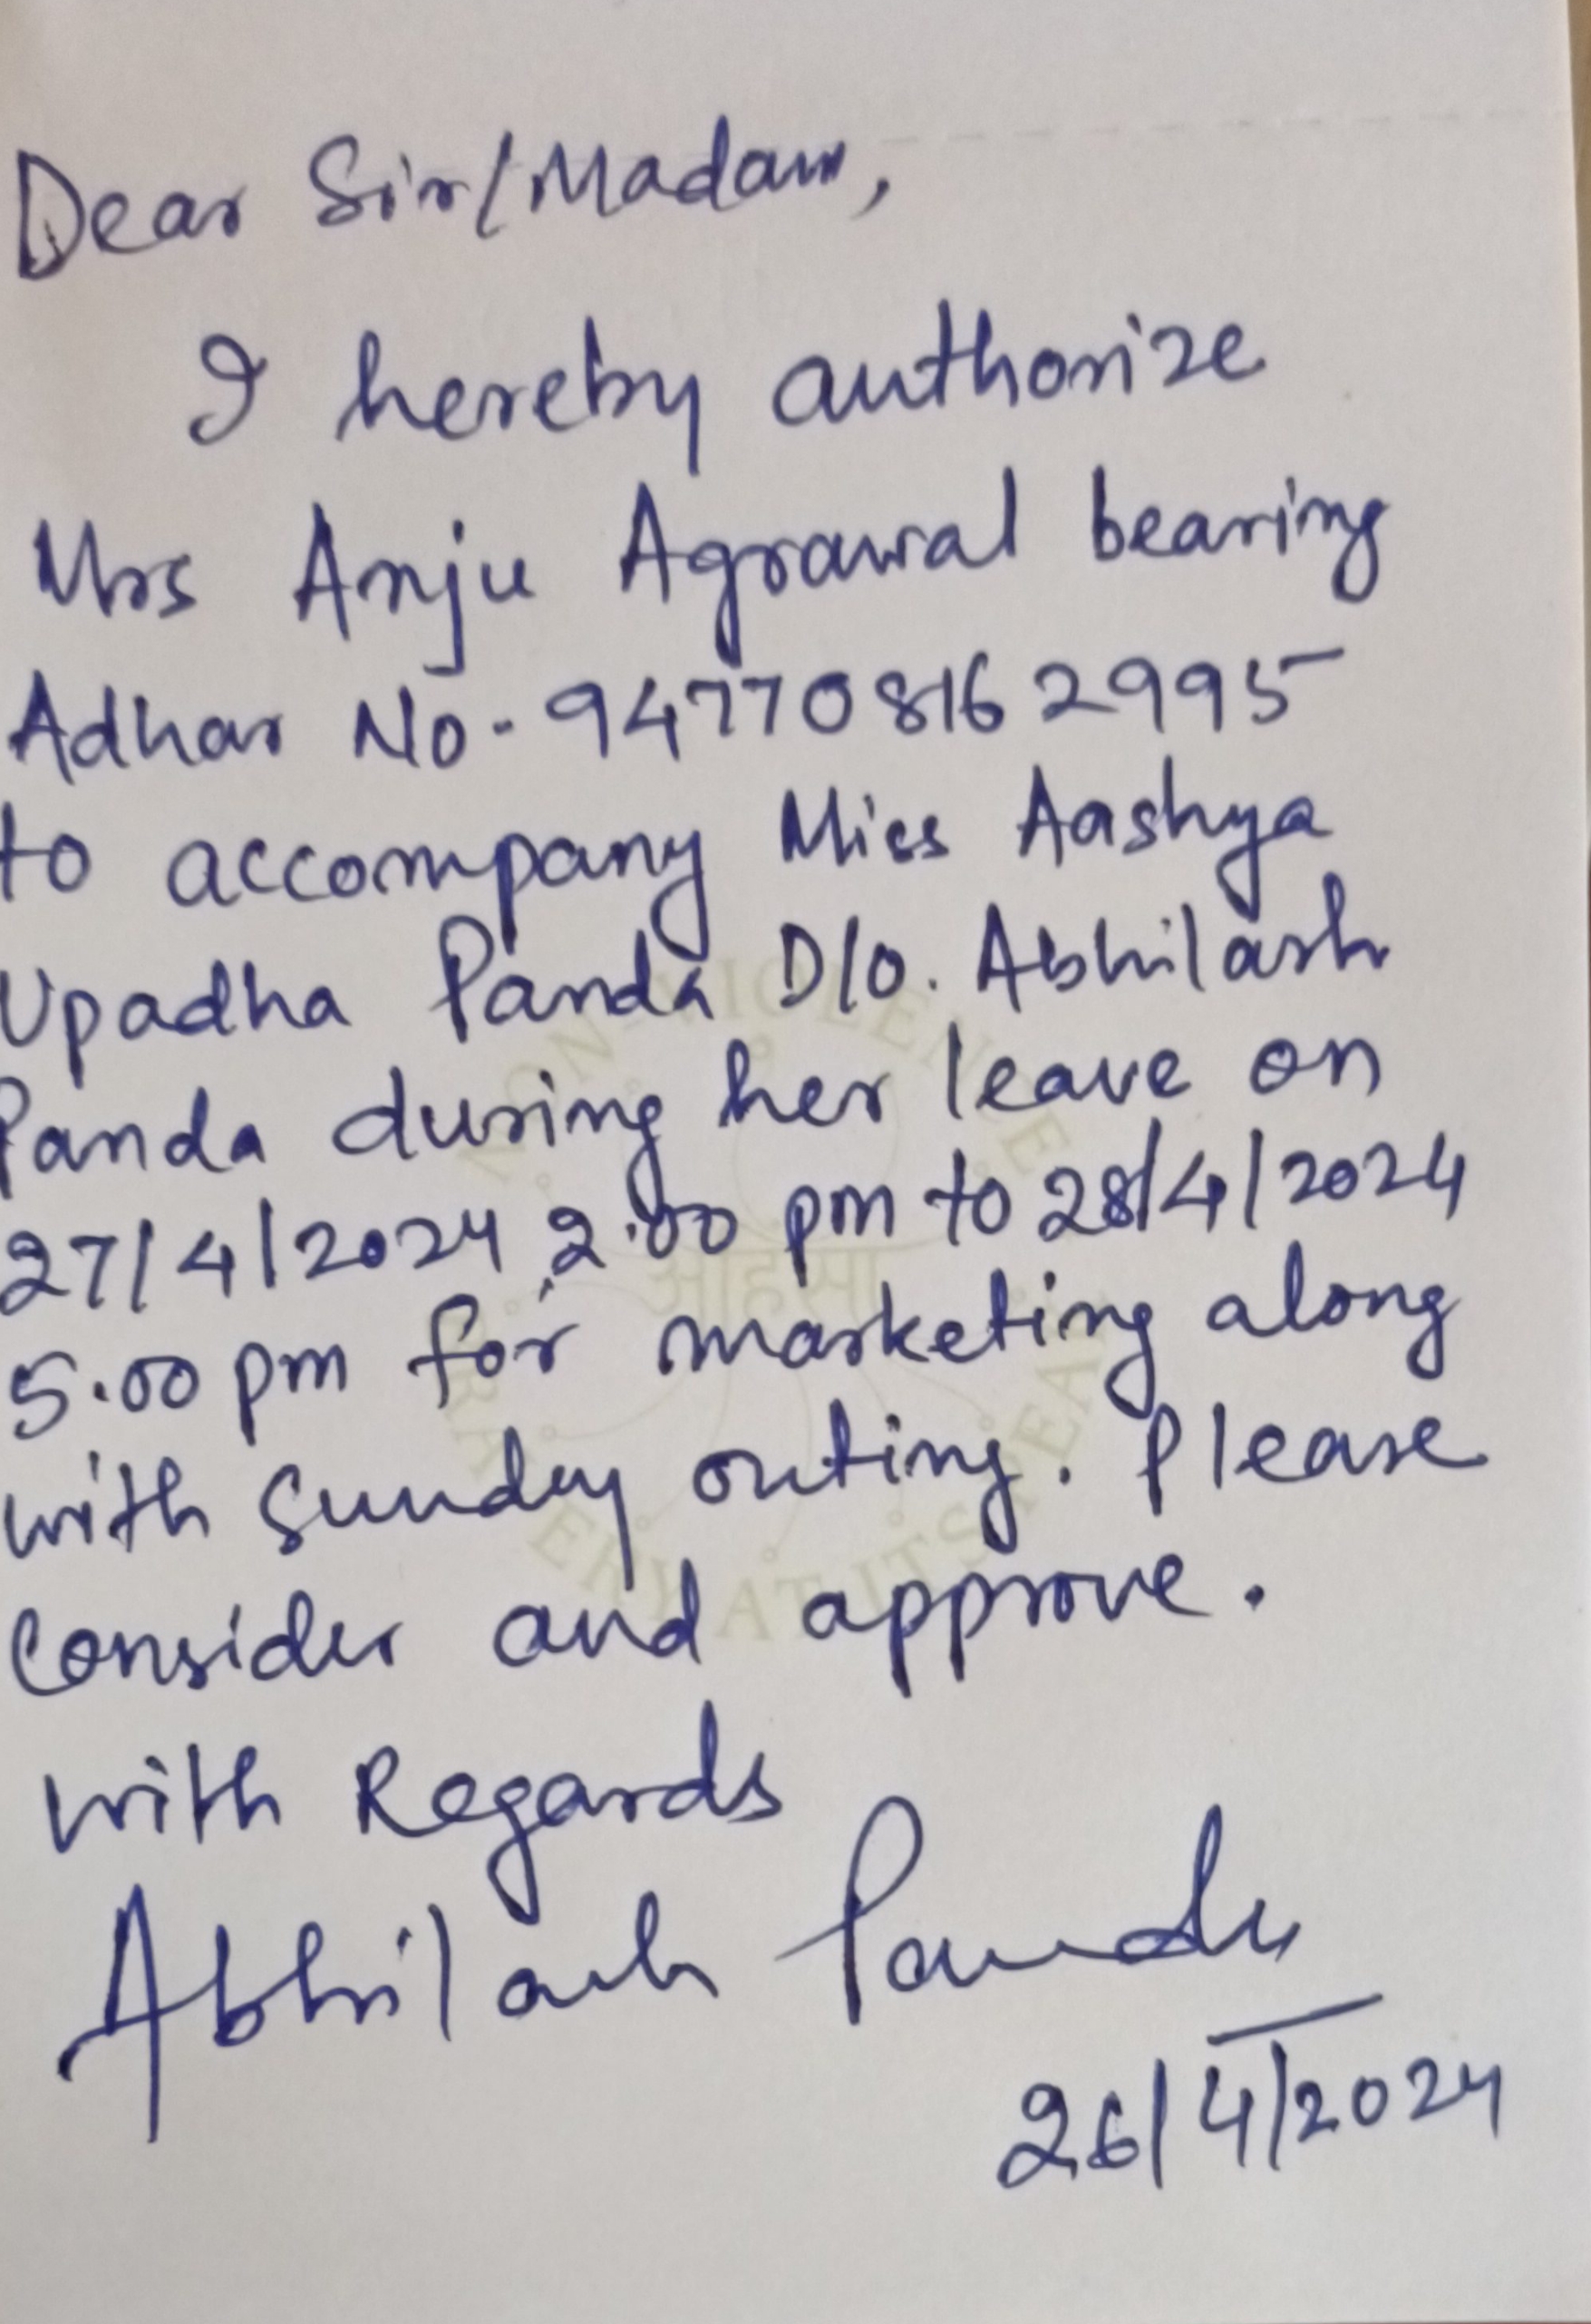 Dear Sir/Madam,
I hereby authorize
Mrs Anju Agrawal bearing
Adhar No. 947708162995
to accompany Miss Aashya
Upadha Panda D/O. Abhilash
Panda during her leave on
27/4/2024 2.00 pm to 28/4/2024
5.00 pm for marketing along
with Sunday outing. Please
consider and approve.
with Regards
Abhilash Panda
26/4/2024
NON-VIOLENCE
अहिंसा
BRAVERY AT ITS PEAK